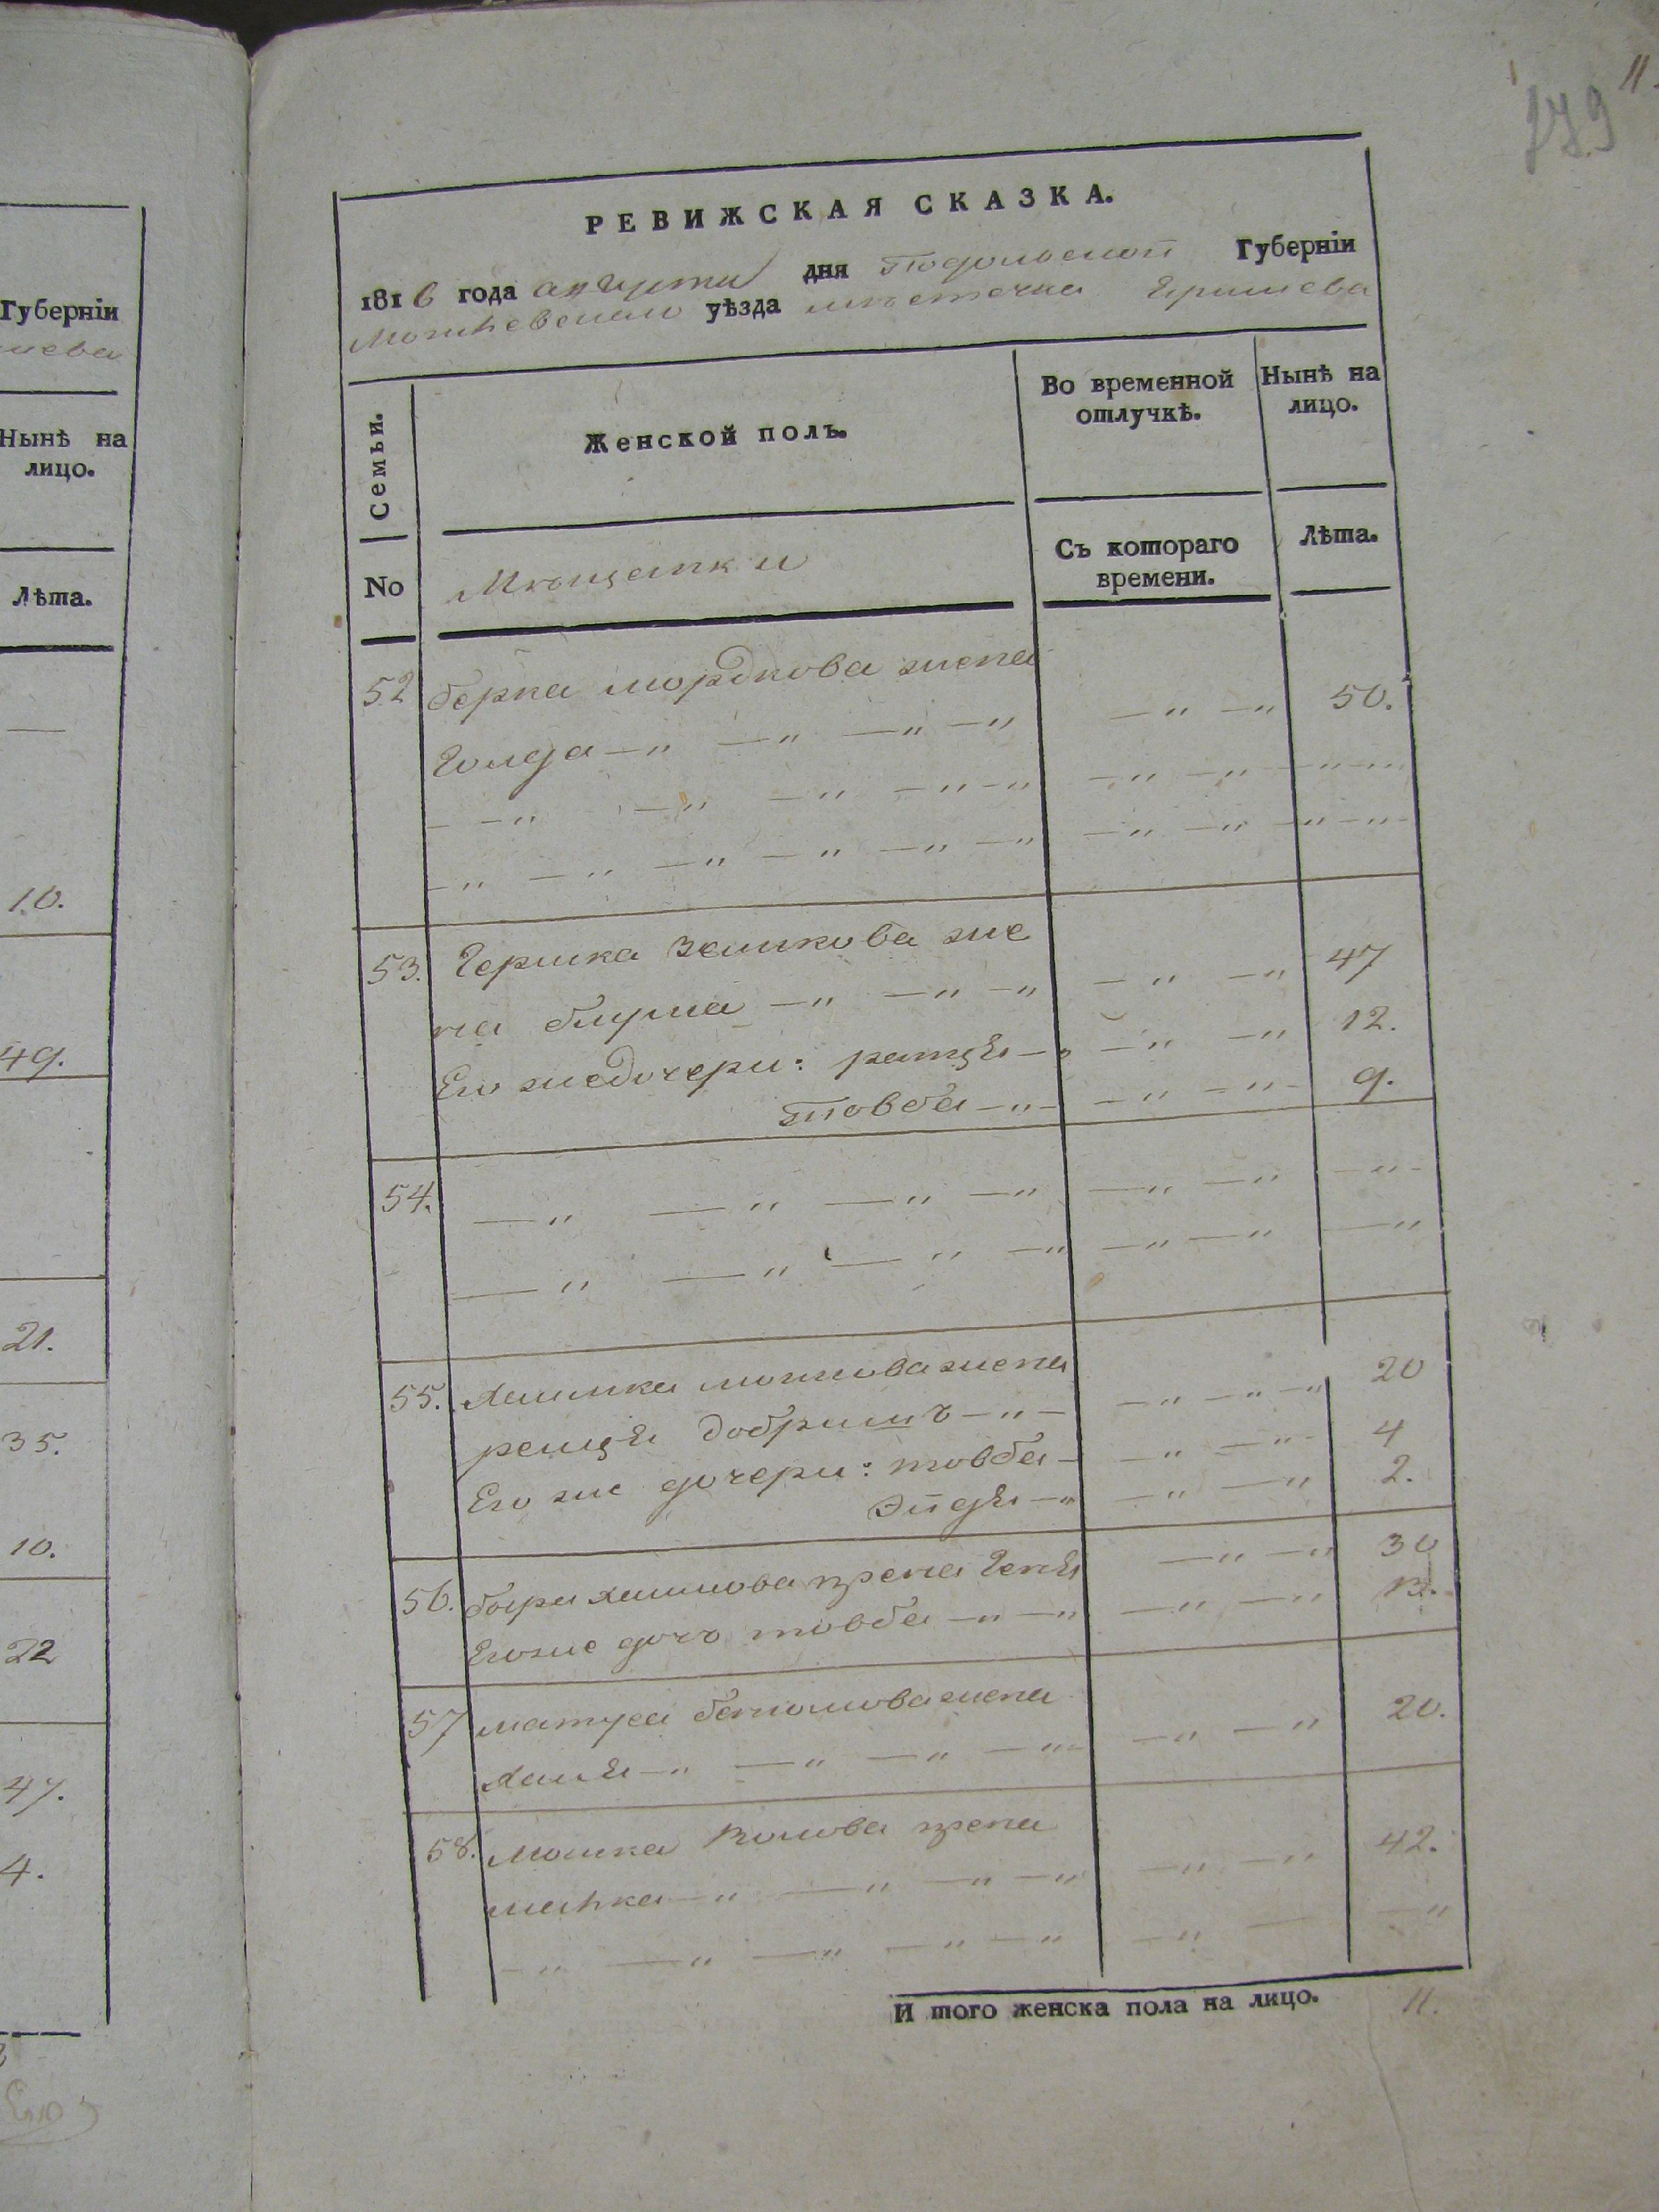 11.
279
РЕВИЖСКАЯ СКАЗКА.
1816 года августа дня Подольской Губерніи
уѣзда мѣстечка
Семьи.
Женской полъ.
Во временной отлучкѣ.
Нынѣ на лицо.
No
Мѣщанки
Съ котораго времени.
Лѣта.
52 берка мордкова жена
Голда —„ —„ —„ —„ —„ —„ 50.
— —„ —„ —„ —„ —„ —„ —„ —„ —„
—„ —„ —„ —„ —„ —„ —„ —„ —„ —„
53. Гершка Зеликова же
на блума —„ —„ —„ —„ —„ 47
Его же дочери: —„ —„ 12.
товба —„— —„ —„— 9.
54. —„ —„ —„ —„ —„ —„ —„—
—„ —„ —„ —„ —„ —„ —„
55. жена —„ —„ —„ 20
добришъ —„—
Его же дочери: товба — —„ —„— 4
Эйдя —„ —„ —„ 2.
56. Хаимова жена Геня —„ —„ 30
Его же дочь товба —„ —„ —„ —„
57 жена
Хая —„ —„ —„ —„— —„ —„ 20.
58. Мошка жена
—„ —„ —„ —„ —„ —„ 42.
—„ —„ —„ —„ —„ —„ — —„
И того женска пола на лицо. 11.
Губерніи
Нынѣ на лицо.
Лѣта.
10.
49.
21.
35.
10.
22
47.
4.